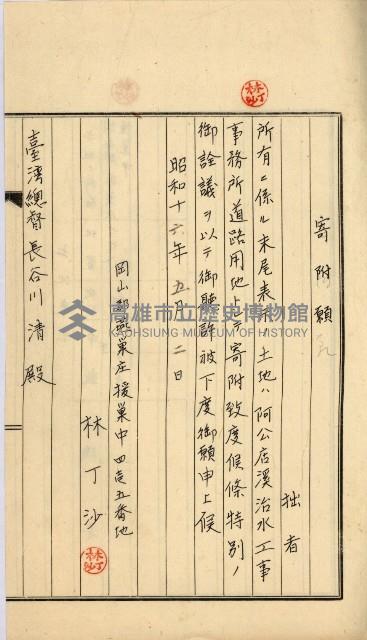 寄附願
拙者
所有ニ係ル末尾表示土地ハ阿公店溪治水工事
事務所道路用地トシテ寄附致度候條特別ノ
御詮議ヲ以テ御聽許被下度御願申上候
昭和十六年五月二日
岡山郡燕巢庄援巢中四壱五番地
林丁沙
臺灣總督長谷川清殿
高雄市立歷史博物館
KAOHSIUNG MUSEUM OF HISTORY
林丁沙
林丁沙